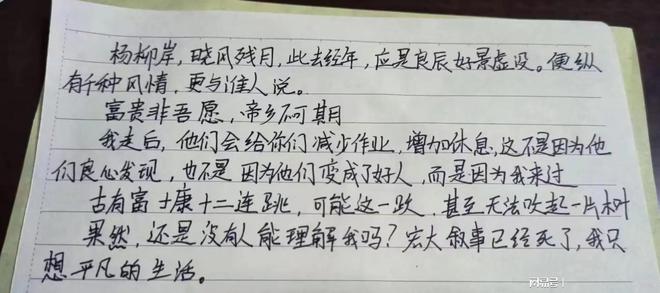 杨柳岸，晓风残月，此去经年，应是良辰好景虚设。便纵
有千种风情，更与谁人说。
富贵非吾愿，帝乡不可期
我走后，他们会给你们减少作业，增加休息，这不是因为他
们良心发现，也不是因为他们变成了好人，而是因为我来过
古有富士康十二连跳，可能这一跳，甚至无法吹起一片树
果然，还是没有人能理解我吗？宏大叙事已经死了，我只
想平凡的生活。